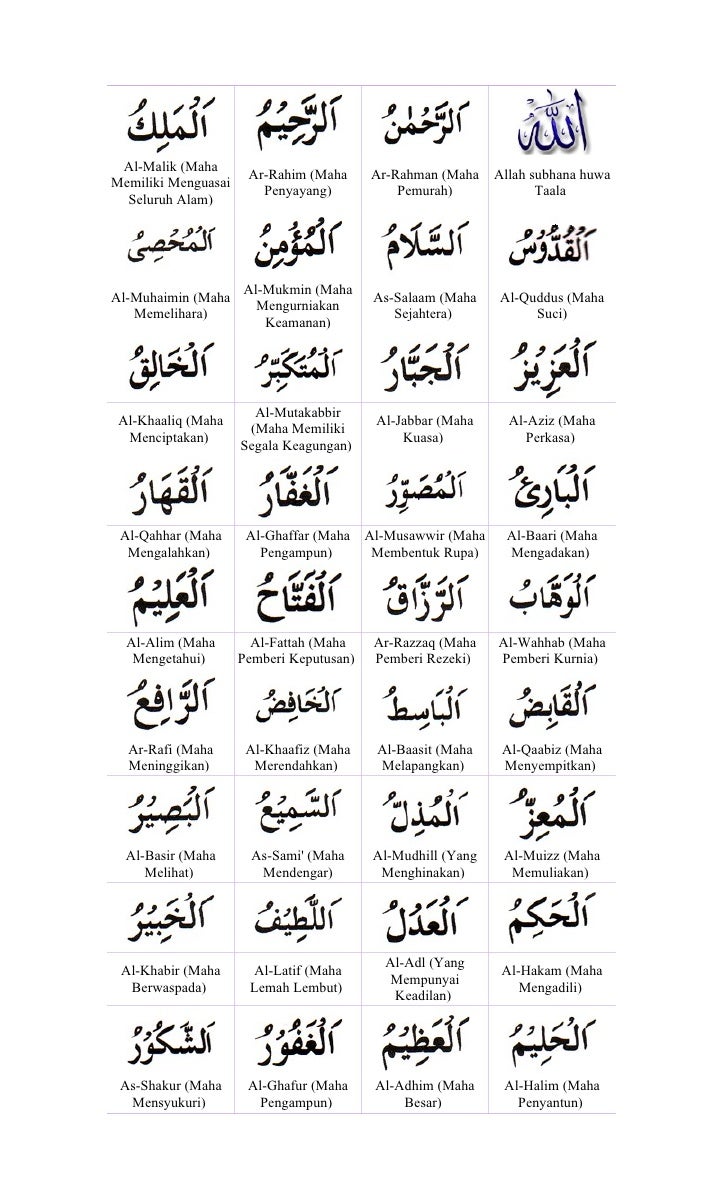 الله
Allah subhana huwa
Taala
اَلرَّحْمٰنُ
Ar-Rahman (Maha
Pemurah)
اَلرَّحِيْمُ
Ar-Rahim (Maha
Penyayang)
اَلْمَلِكُ
Al-Malik (Maha
Memiliki Menguasai
Seluruh Alam)
اَلْقُدُّوْسُ
Al-Quddus (Maha
Suci)
اَلسَّلَامُ
As-Salaam (Maha
Sejahtera)
اَلْمُؤْمِنُ
Al-Mukmin (Maha
Mengurniakan
Keamanan)
اَلْمُحْصِىُ
Al-Muhaimin (Maha
Memelihara)
اَلْعَزِيْزُ
Al-Aziz (Maha
Perkasa)
اَلْجَبَّارُ
Al-Jabbar (Maha
Kuasa)
اَلْمُتَكَبِّرُ
Al-Mutakabbir
(Maha Memiliki
Segala Keagungan)
اَلْخَالِقُ
Al-Khaaliq (Maha
Menciptakan)
اَلْبَارِئُ
Al-Baari (Maha
Mengadakan)
اَلْمُصَوِّرُ
Al-Musawwir (Maha
Membentuk Rupa)
اَلْغَفَّارُ
Al-Ghaffar (Maha
Pengampun)
اَلْقَهَارُ
Al-Qahhar (Maha
Mengalahkan)
اَلْوَهَّابُ
Al-Wahhab (Maha
Pemberi Kurnia)
اَلرَّزَّاقُ
Ar-Razzaq (Maha
Pemberi Rezeki)
اَلْفَتَّاحُ
Al-Fattah (Maha
Pemberi Keputusan)
اَلْعَلِيْمُ
Al-Alim (Maha
Mengetahui)
اَلْقَابِضُ
Al-Qaabiz (Maha
Menyempitkan)
اَلْبَاسِطُ
Al-Baasit (Maha
Melapangkan)
اَلْخَافِضُ
Al-Khaafiz (Maha
Merendahkan)
اَلرَّافِعُ
Ar-Rafi (Maha
Meninggikan)
اَلْمُعِزُّ
Al-Muizz (Maha
Memuliakan)
اَلْمُذِلُّ
Al-Mudhill (Yang
Menghinakan)
اَلسَّمِيْعُ
As-Sami' (Maha
Mendengar)
اَلْبَصِيْرُ
Al-Basir (Maha
Melihat)
اَلْحَكِمُ
Al-Hakam (Maha
Mengadili)
اَلْعَدْلُ
Al-Adl (Yang
Mempunyai
Keadilan)
اَللَّطِيْفُ
Al-Latif (Maha
Lemah Lembut)
اَلْخَبِيْرُ
Al-Khabir (Maha
Berwaspada)
اَلْحَلِيْمُ
Al-Halim (Maha
Penyantun)
اَلْعَظِيْمُ
Al-Adhim (Maha
Besar)
اَلْغَفُوْرُ
Al-Ghafur (Maha
Pengampun)
اَلشَّكُوْرُ
As-Shakur (Maha
Mensyukuri)